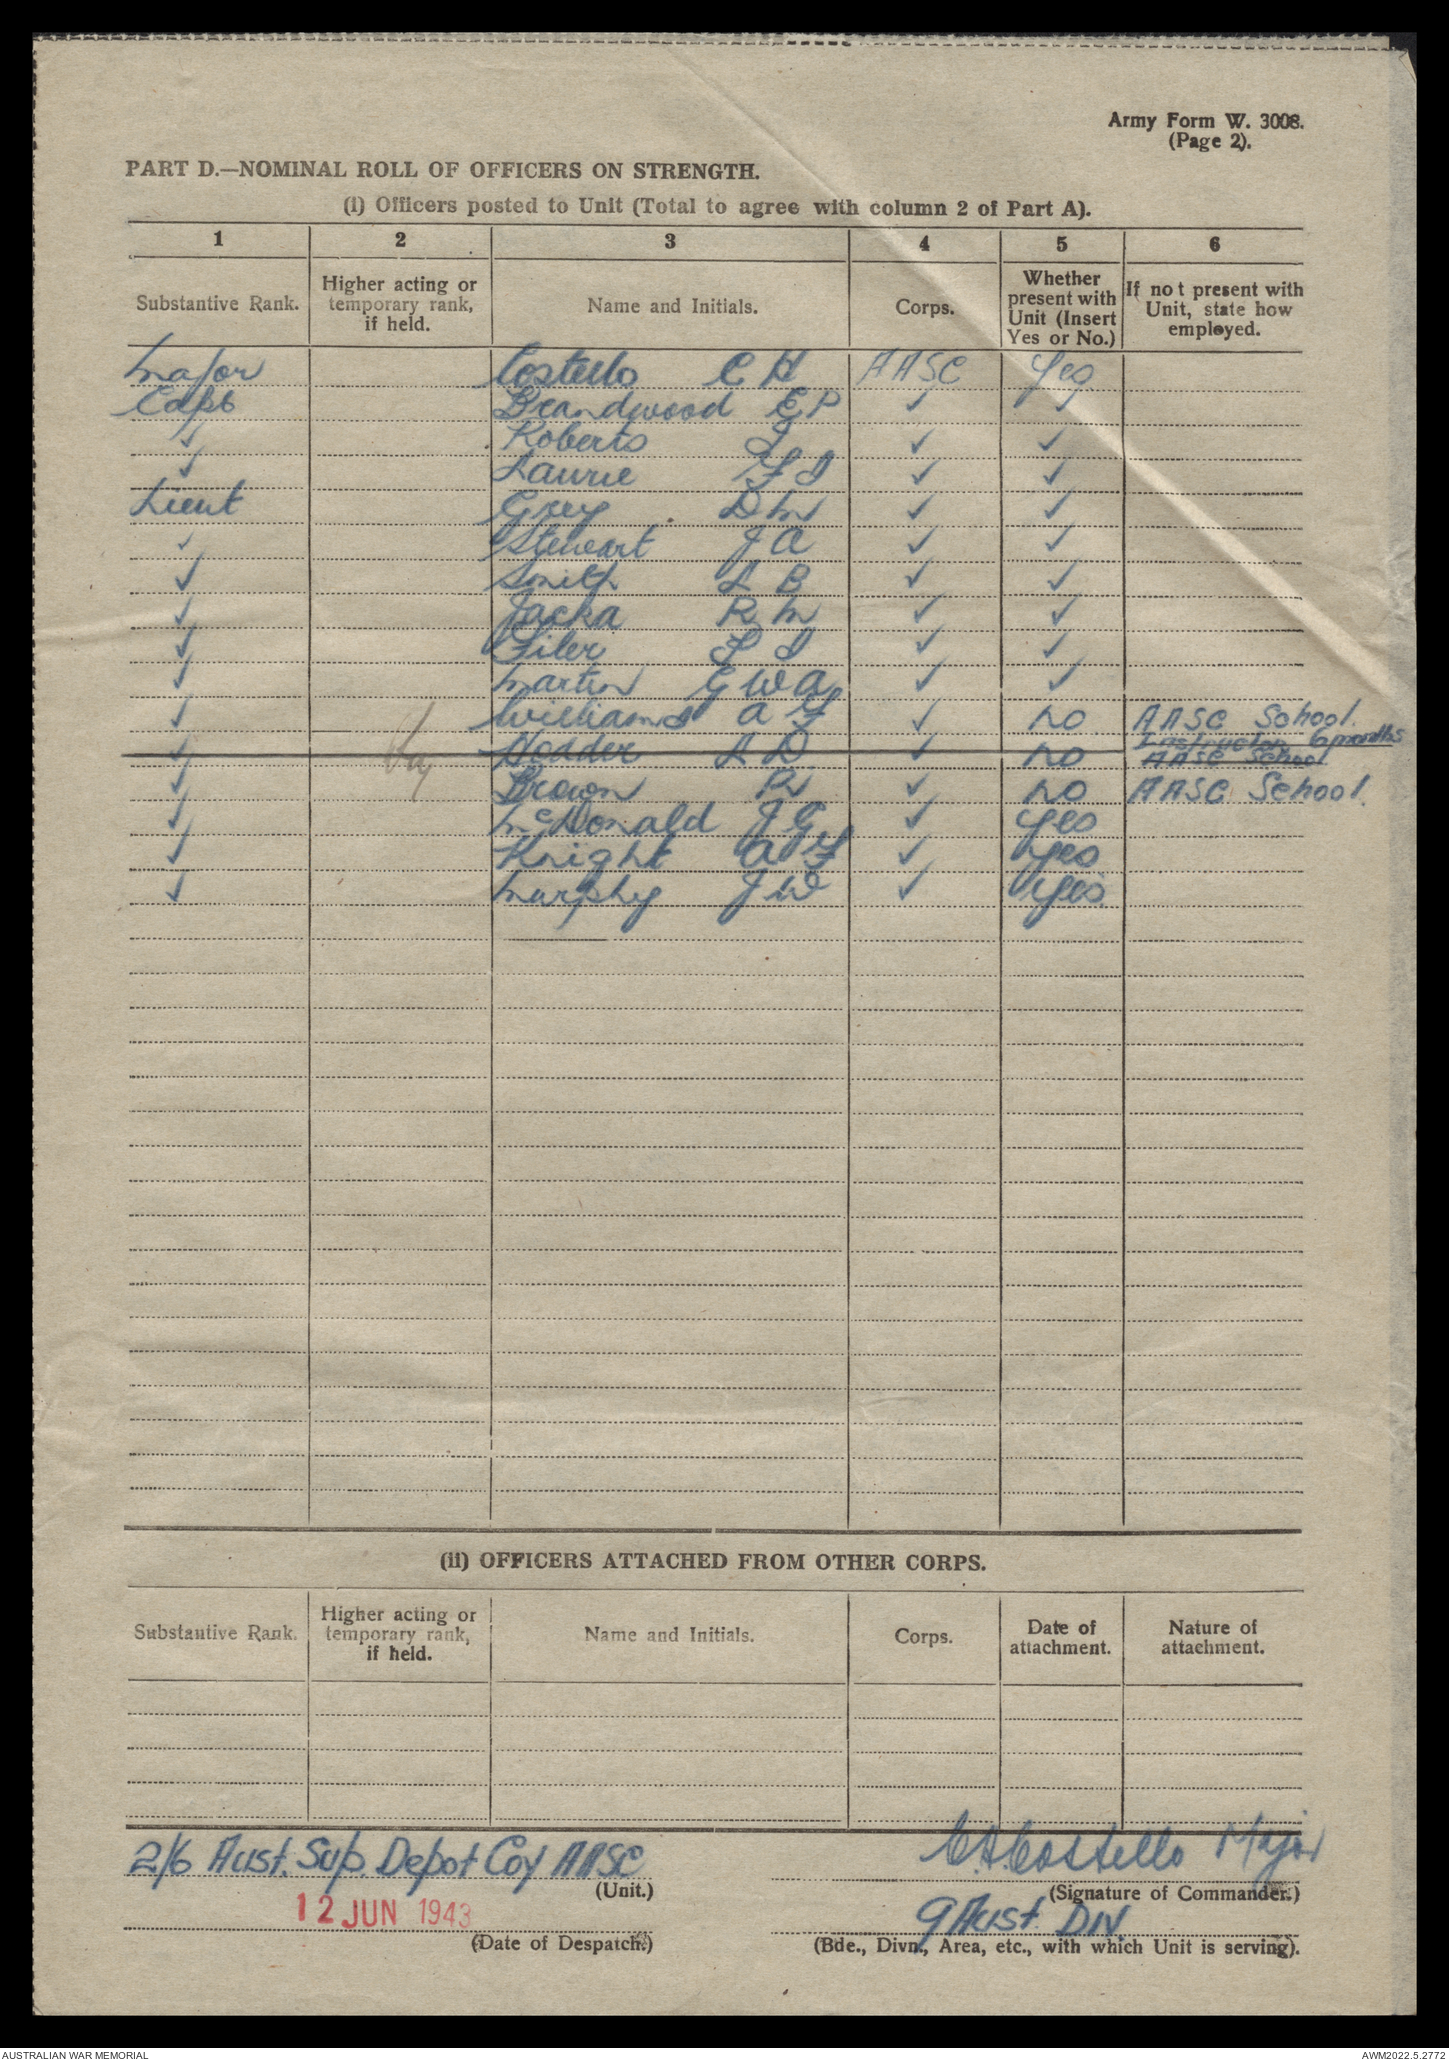 Army Form W. 3008.
(Page 2).
PART D.—NOMINAL ROLL OF OFFICERS ON STRENGTH.
(i) Officers posted to Unit (Total to agree with column 2 of Part A).
1 2 3 4 5 6
Substantive Rank. Higher acting or temporary rank, if held. Name and Initials. Corps. Whether present with Unit (Insert Yes or No.) If not present with Unit, state how employed.
Major Costello C H AASC Yes
Capt Brandwood E P ✓ ✓
✓ Roberts J ✓ ✓
✓ Laurie F I ✓ ✓
Lieut Grey D M ✓ ✓
✓ Stewart J A ✓ ✓
✓ Smith L B ✓ ✓
✓ Jacka R M ✓ ✓
✓ Filer L I ✓ ✓
✓ Martin G W A ✓ ✓
✓ Williams A F ✓ NO AASC School.
Instructor 6 months
✓ Hodder L D ✓ NO AASC School
✓ Brown R ✓ NO AASC School.
✓ McDonald J G ✓ Yes
✓ Knight A F ✓ Yes
✓ Murphy J W ✓ Yes
(ii) OFFICERS ATTACHED FROM OTHER CORPS.
Substantive Rank. Higher acting or temporary rank, if held. Name and Initials. Corps. Date of attachment. Nature of attachment.
2/6 Aust. Sup. Depot Coy AASC
(Unit.)
C.H. Costello Major
(Signature of Commander.)
12 JUN 1943
(Date of Despatch.)
9 Aust. DIV.
(Bde., Divn., Area, etc., with which Unit is serving).
AUSTRALIAN WAR MEMORIAL AWM2022.5.2772